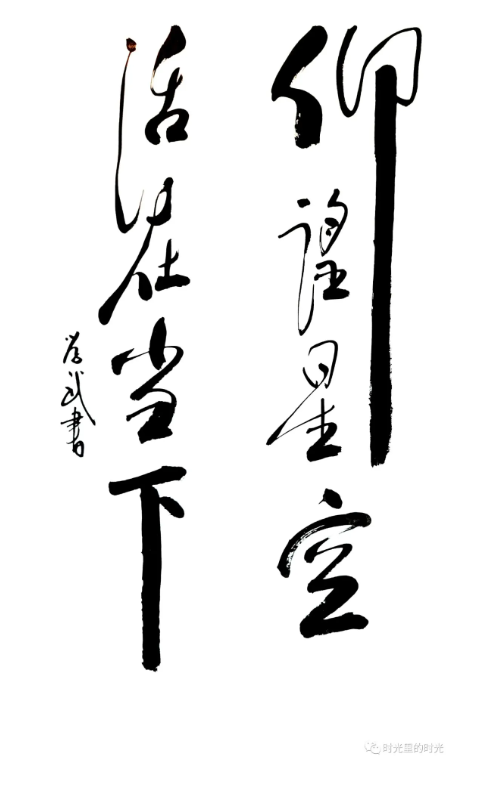 仰望星空
活在当下
孝武書
时光里的时光